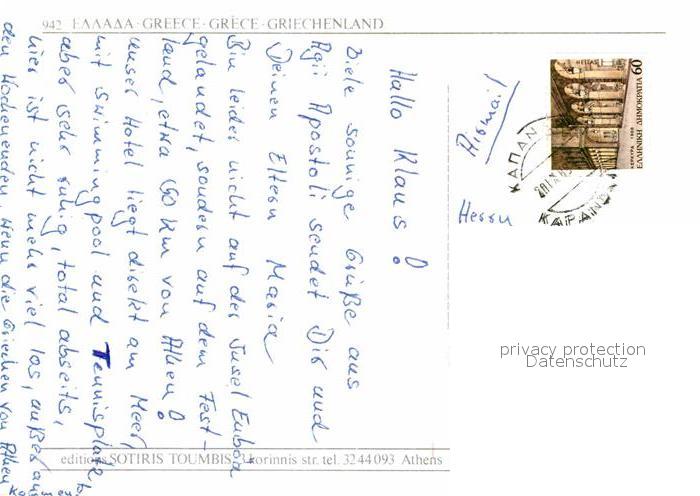 942 ΕΛΛΑΔΑ · GREECE · GRÈCE · GRIECHENLAND
Hallo Klaus!
Viele sonnige Grüße aus
Agii Apostoli sendet Dir und
Deinen Eltern Maria
Bin leider nicht auf der Insel Euböa
gelandet, sondern auf dem Fest-
land, etwa 60 km von Athen!
Unser Hotel liegt direkt am Meer,
mit Swimmingpool und Tennisplatz,
aber sehr ruhig, total abseits,
hier ist nicht mehr viel los, außer an
den Wochenenden, wenn die Griechen von Athen
kommen
editions SOTIRIS TOUMBIS, 3 korinnis str. tel. 32 44 093 Athens
Airmail
Herrn
60
ΕΛΛΗΝΙΚΗ ΔΗΜΟΚΡΑΤΙΑ
ΚΑΠΑΝ
ΚΑΡΑΝ
privacy protection
Datenschutz